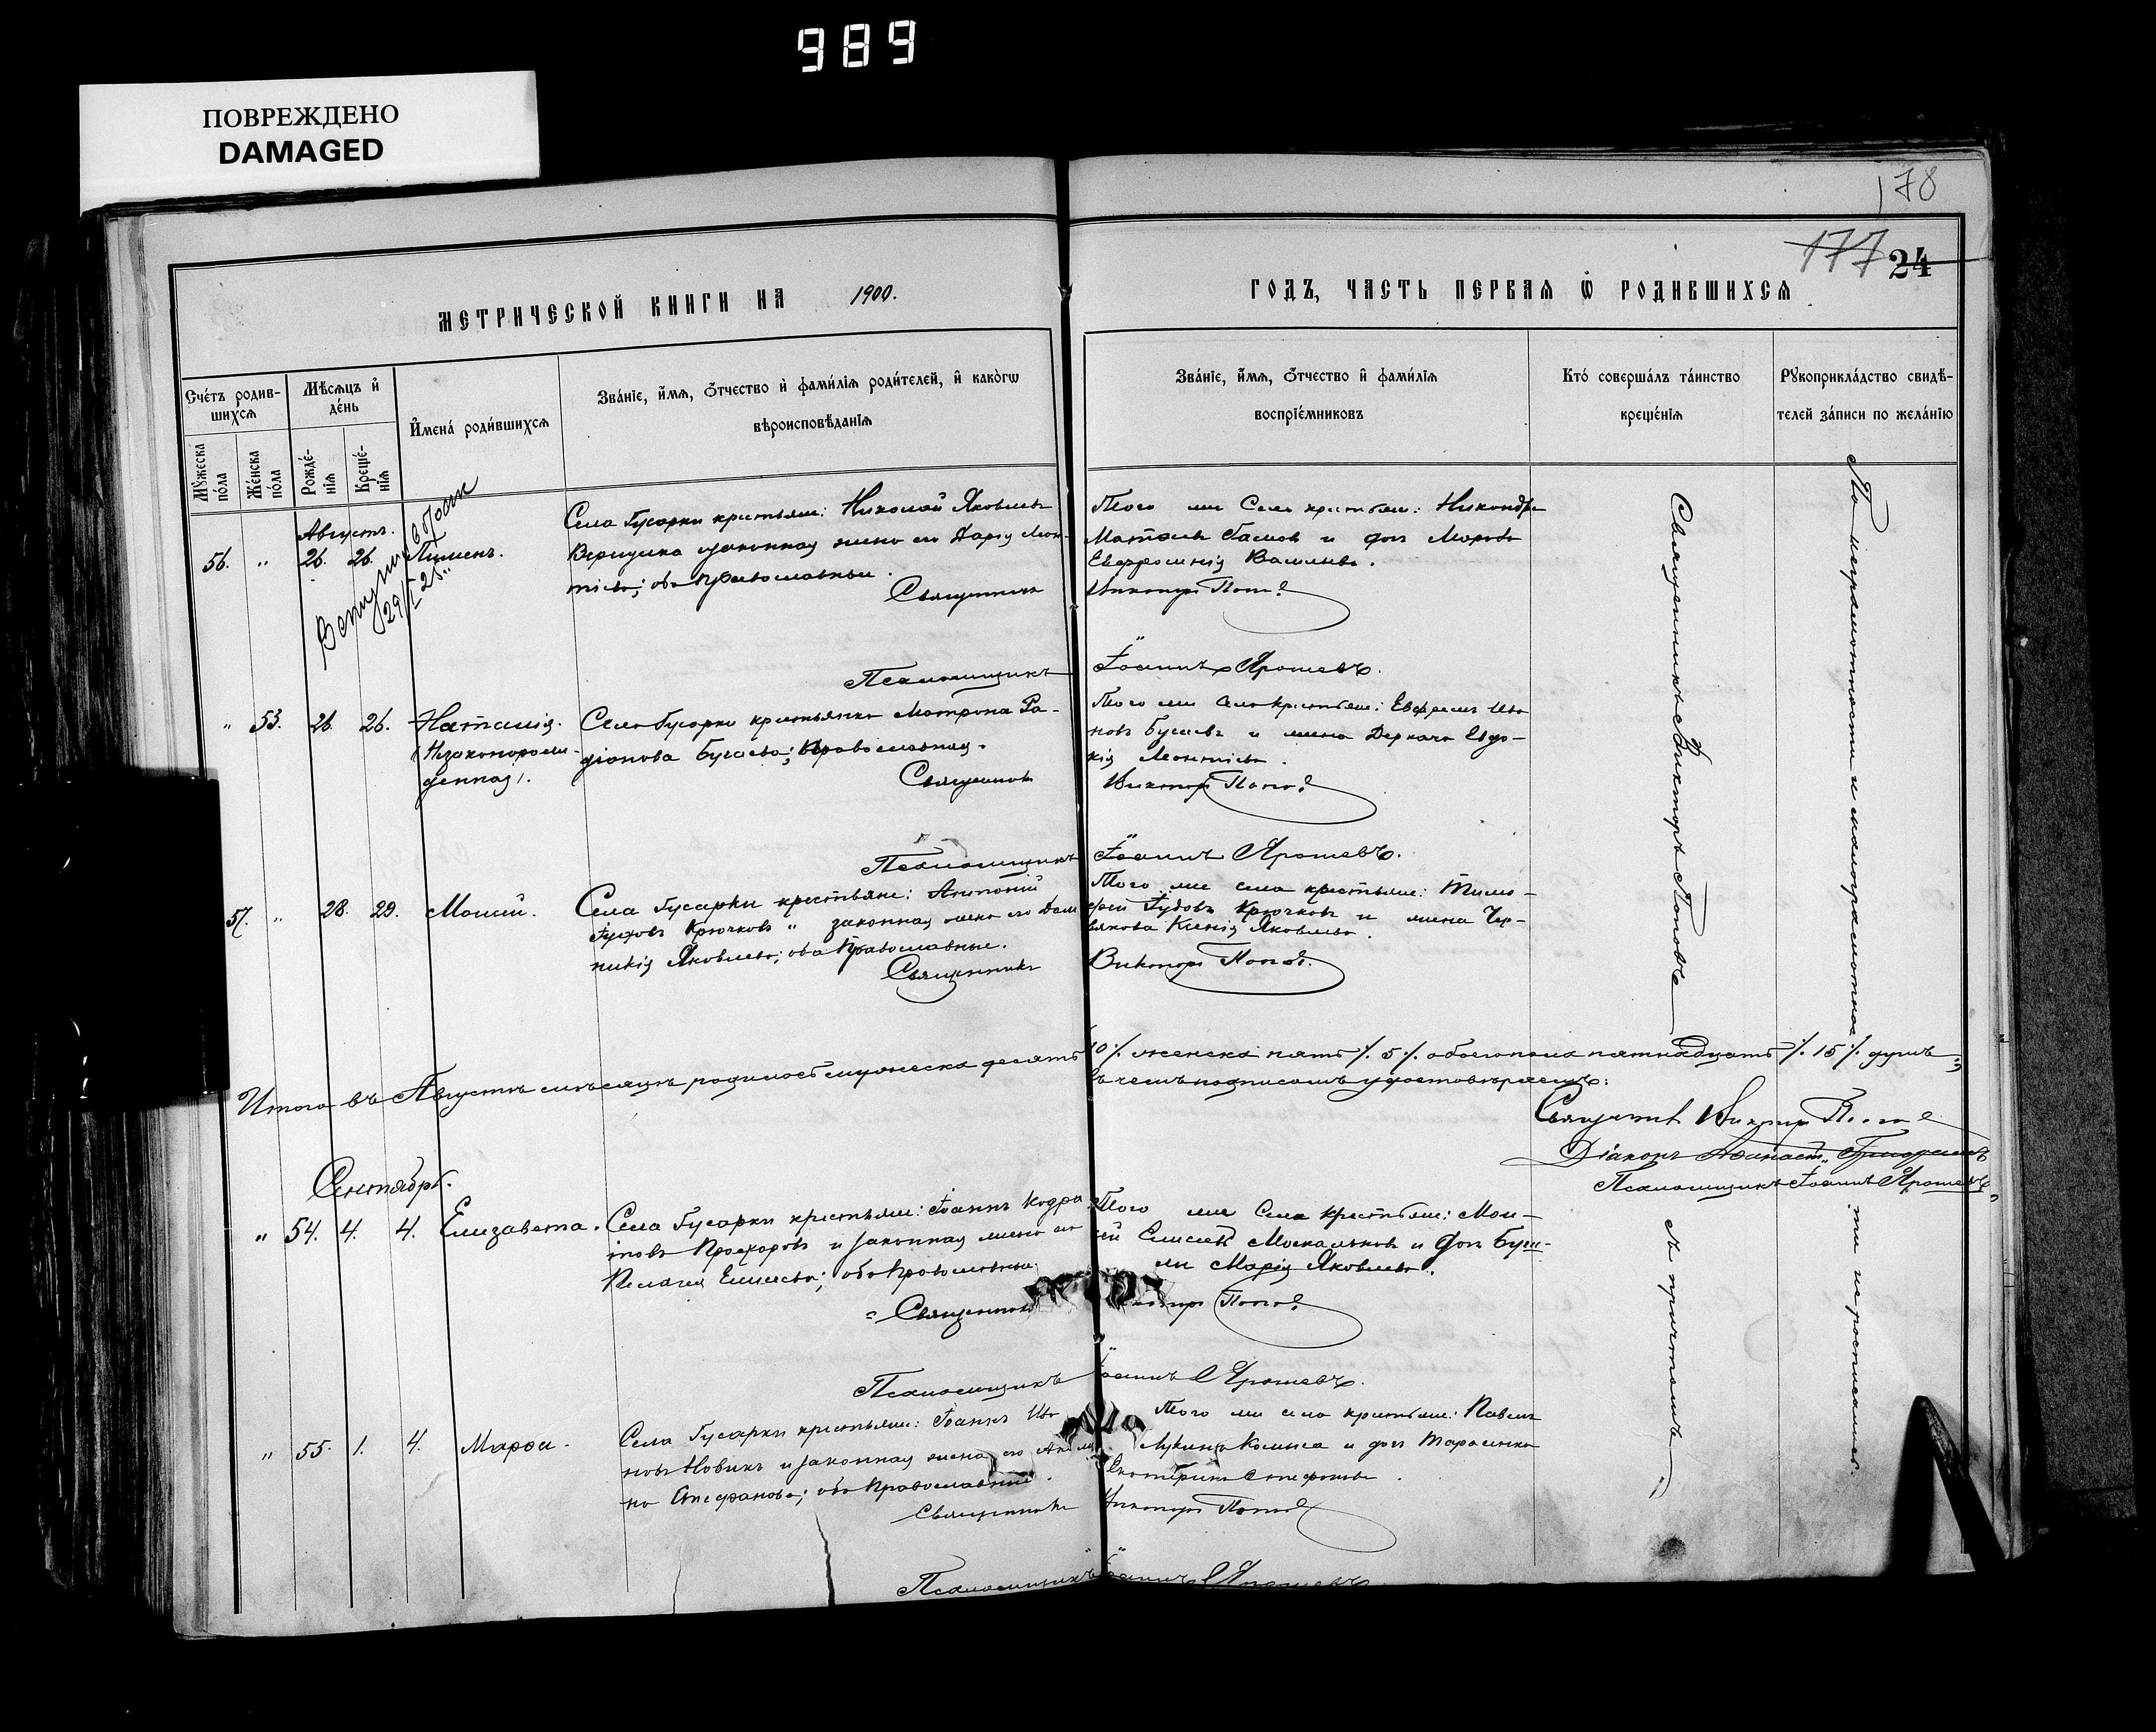 989
ПОВРЕЖДЕНО
DAMAGED
178
177 24
МЕТРИЧЕСКОЙ КНИГИ НА 1900.
ГОДЪ, ЧАСТЬ ПЕРВАЯ Ѡ РОДИВШИХСЯ
Счетъ родив-
шихся
Мужеска
пола
Женска
пола
Мѣсяцъ и
день
Рожде-
нія
Креще-
нія
Имена родившихся
Званіе, имя, отчество и фамилія родителей, и какогѡ
вѣроисповѣданія
Званіе, имя, отчество и фамилія
воспріемниковъ
Кто совершалъ таинство
крещенія
Рукоприкладство свидѣ-
телей записи по желанію
Августъ.
56. " 26. 26. Пименъ.
Села Гусарки крестьяне: Николай Яковлевъ
законная жена его Дарія Леон-
тіева; оба православные.
Священникъ
Того же Села крестьяне:
Матѳеевъ и
Евфросинія Васильева.
Викторъ Поповъ
Псаломщикъ Іоаннъ Ярошевъ.
" 53. 26. 26. Наталія.
(Незаконорож-
денная).
Села Гусарки крестьянка Матрона Ра-
діонова Бугаева; Православная.
Священникъ
Того же Села крестьяне: Ефремъ Ива-
новъ Бугаевъ и жена Деркача Евдо-
кія Леонтіева.
Викторъ Поповъ
Псаломщикъ Іоаннъ Ярошевъ.
57. " 28. 29. Моисей.
Села Гусарки крестьяне: Антоній
Крючковъ " законная жена его Дом-
никія Яковлева; оба Православные.
Священникъ
Того же села крестьяне: Тимо-
фей Крючковъ и жена Чер-
вякова Ксенія Яковлева.
Викторъ Поповъ.
Священникъ Викторъ Поповъ
съ причтомъ
По неграмотности и малограмотно
сти не росписались.
Итого въ Августѣ мѣсяцѣ родилось мужеска десять 10 % женска пять % 5 % обоего пола пятнадцать % 15 % душъ
въ чемъ подписомъ удостовѣряемъ:
Священникъ Викторъ Поповъ
Діаконъ
Псаломщикъ Іоаннъ Ярошевъ
Сентябрь.
" 54. 4. 4. Елизавета.
Села Гусарки крестьяне: Іоаннъ Кодра-
товъ Прохоровъ и законная жена его
Пелагея Елисеева; оба Православные.
Священникъ
Того же Села крестьяне: Мои-
сей Елисеевъ Москальковъ и
Марія Яковлева.
Поповъ
Псаломщикъ Іоаннъ Ярошевъ.
" 55. 1. 4. Марѳа.
Села Гусарки крестьяне: Іоаннъ Ива-
новъ Новикъ и законная жена его
на Стефанова; оба Православные.
Священникъ
Того же села крестьяне: Павелъ
Лукинъ и Тарасенка
Екатерина Стефанова.
Викторъ Поповъ
Псаломщикъ Іоаннъ Ярошевъ